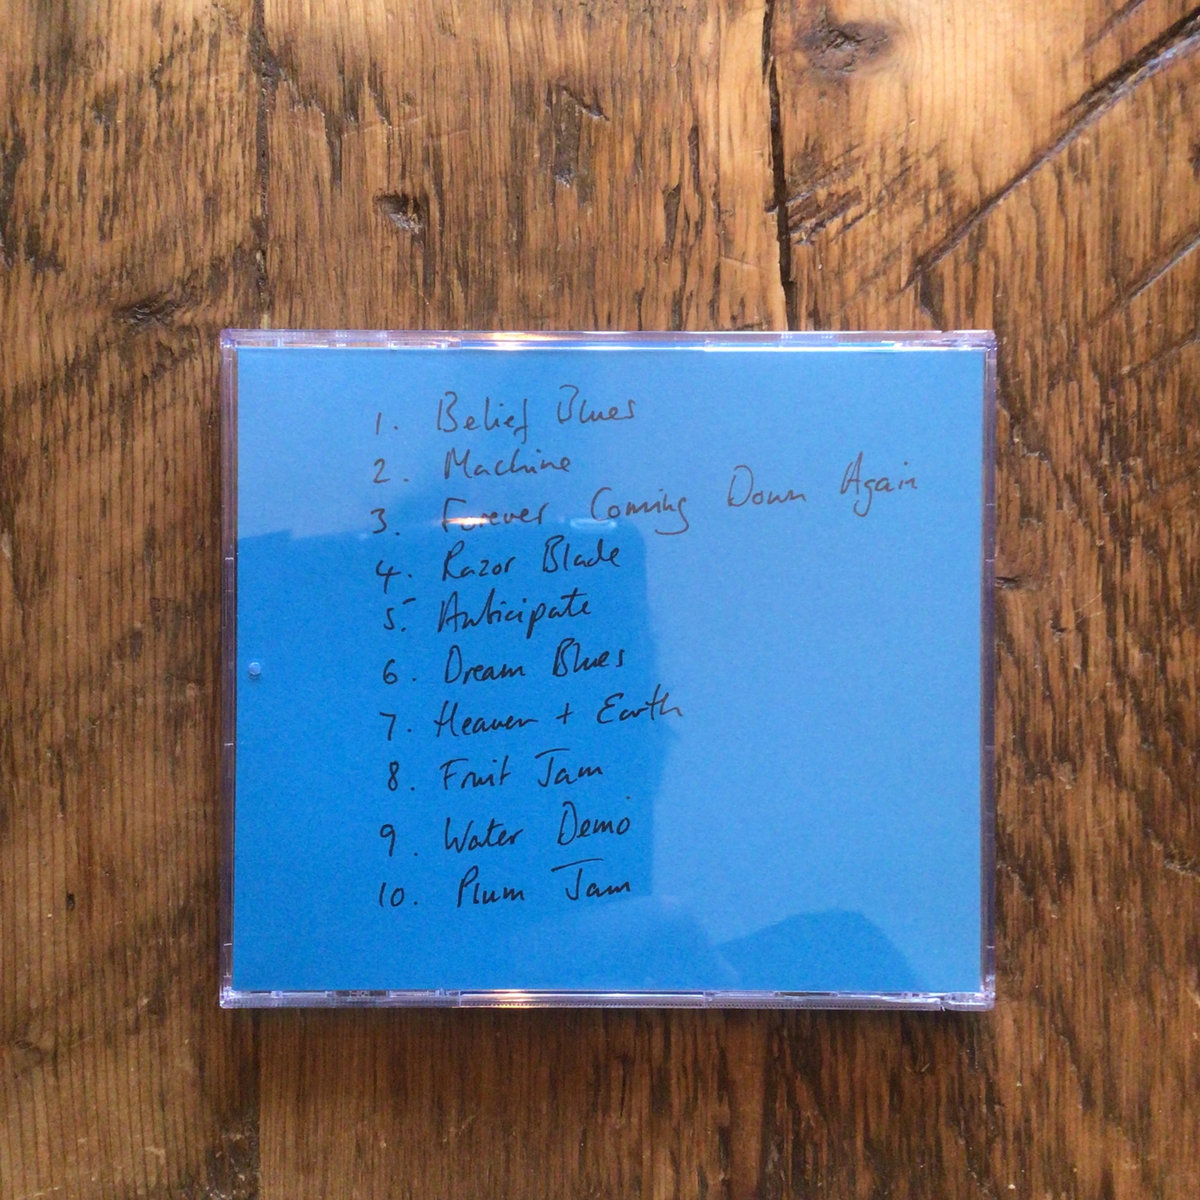 1. Belief Blues
2. Machine
3. Forever Coming Down Again
4. Razor Blade
5. Anticipate
6. Dream Blues
7. Heaven + Earth
8. Fruit Jam
9. Water Demo
10. Plum Jam